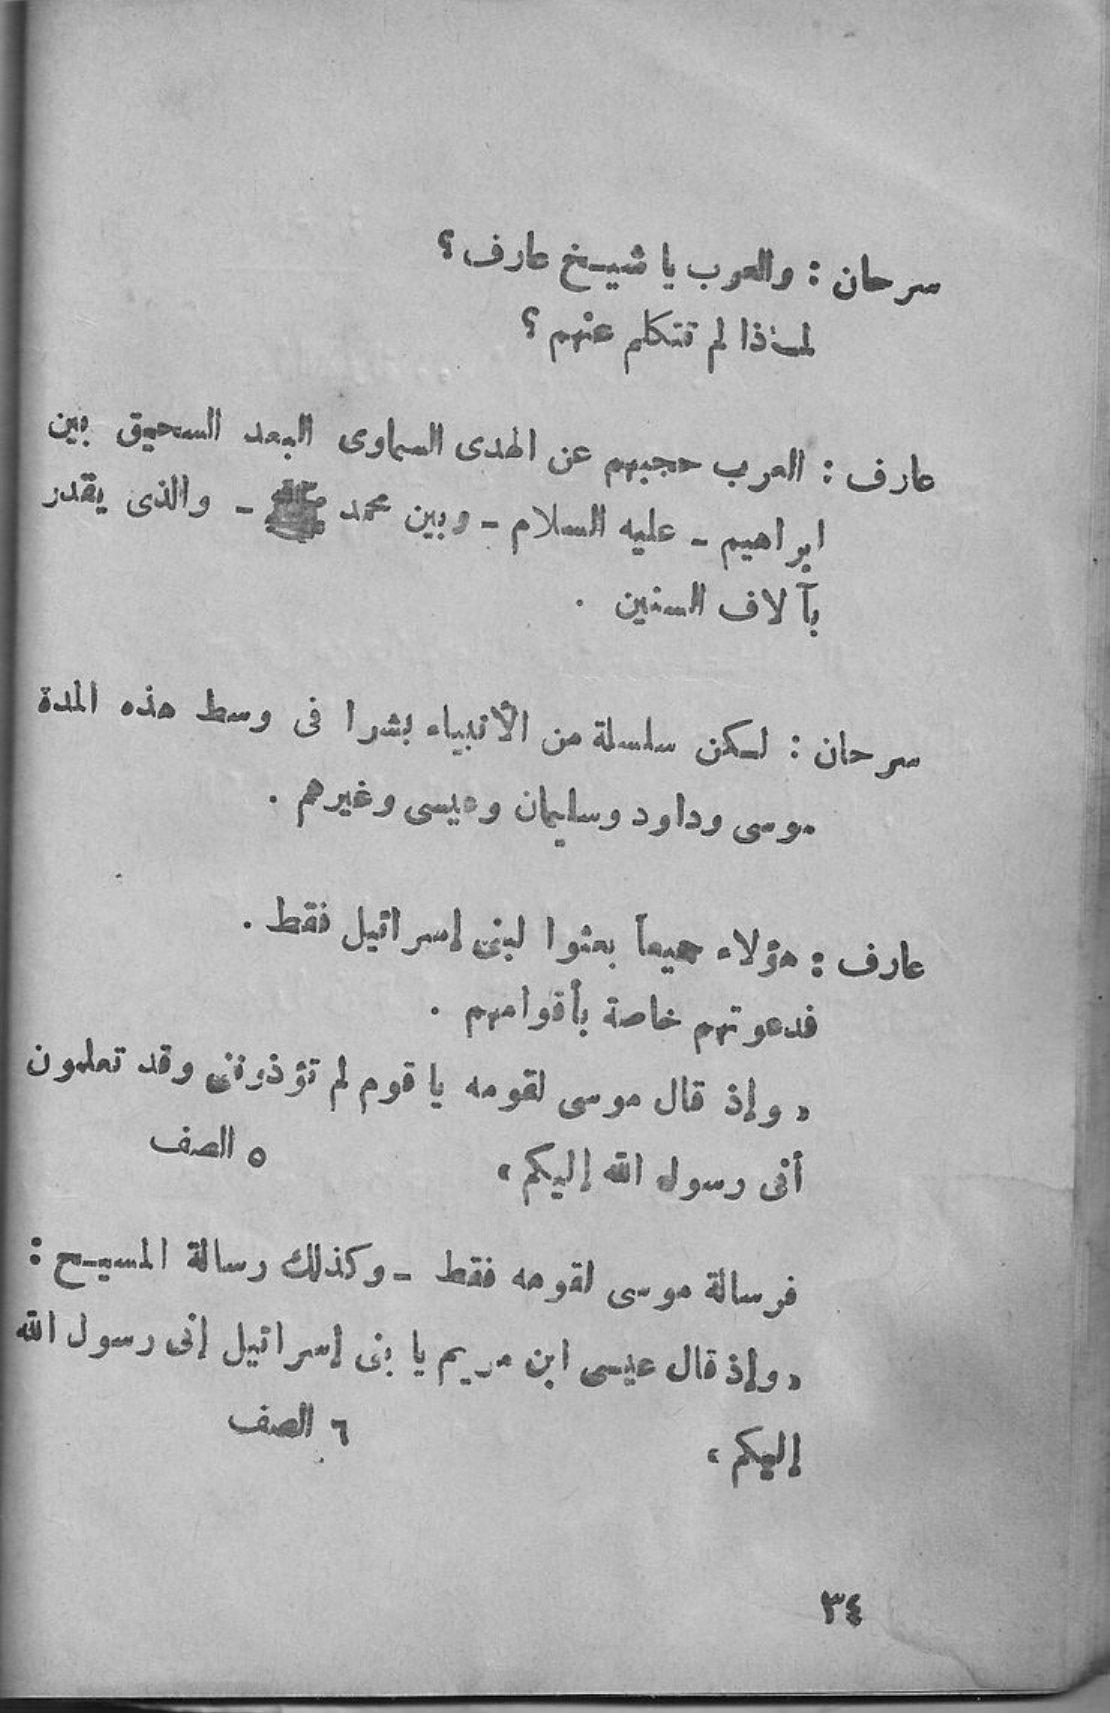 سرحان : والعرب يا شيخ عارف ؟
لماذا لم تتكلم عنهم ؟
عارف : العرب حجبهم عن الهدى السماوى البعد السحيق بين
ابراهيم - عليه السلام - وبين محمد ﷺ - والذى يقدر
بآلاف السنين .
سرحان : لكن سلسلة من الأنبياء بشرا فى وسط هذه المدة
موسى وداود وسليمان وعيسى وغيرهم .
عارف : هؤلاء جميعاً بعثوا لبنى إسرائيل فقط .
فدعوتهم خاصة بأقوامهم .
« وإذ قال موسى لقومه يا قوم لم تؤذوننى وقد تعلمون
أنى رسول الله إليكم » ٥ الصف
فرسالة موسى لقومه فقط - وكذلك رسالة المسيح :
« وإذ قال عيسى ابن مريم يا بنى إسرائيل إنى رسول الله
إليكم » ٦ الصف
٣٤